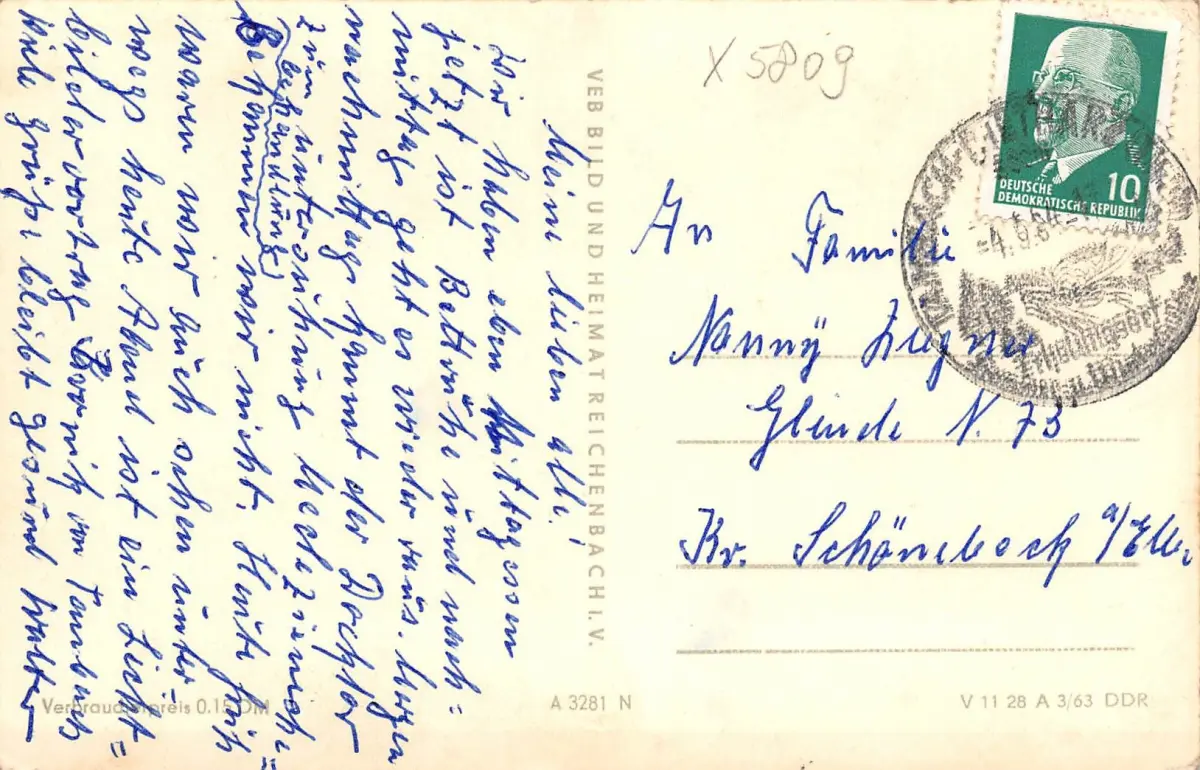 Meine lieben alle!
Wir haben eben Mittagessen
jetzt ist Bettruhe und nach=
mittag geht es wieder raus. Morgen
nachmittag kommt der Doctor
zum Untersuchung Medezienich=
behandlung
Bekommen wir nicht. Heute früh
waren wir auch schon unter=
wegs heute Abend ist ein Licht=
bildervortrag
Viele Grüße bleibt gesund Walter
VEB BILD UND HEIMAT REICHENBACH I. V.
X 5809
DEUTSCHE
DEMOKRATISCHE REPUBLIK
10
-4.6.64
An Familie
Nanny Zugner
Glinde N. 73
Kr. Schönebeck a/Elbe
Verbraucherpreis 0.15 DM
A 3281 N
V 11 28 A 3/63 DDR